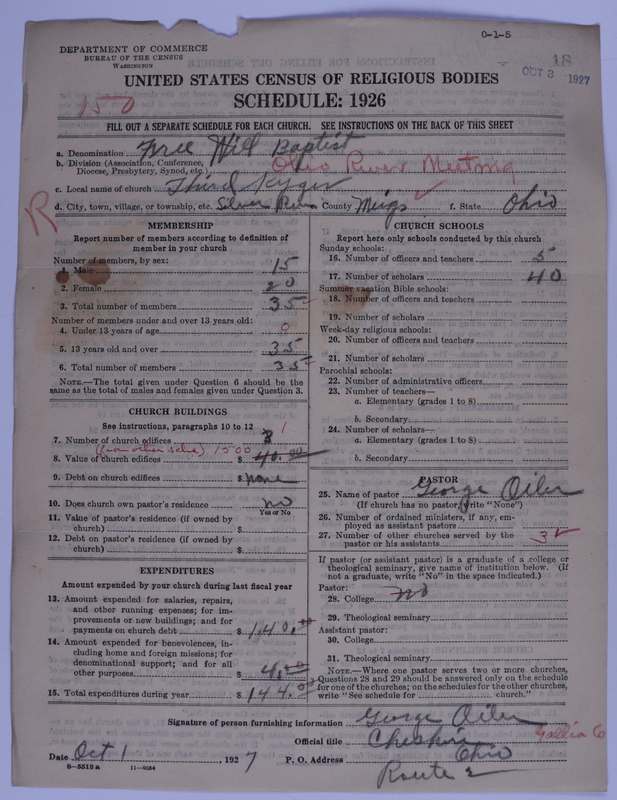 0-1-5
DEPARTMENT OF COMMERCE
BUREAU OF THE CENSUS
WASHINGTON
18
OCT 3 1927
UNITED STATES CENSUS OF RELIGIOUS BODIES
150
SCHEDULE: 1926
FILL OUT A SEPARATE SCHEDULE FOR EACH CHURCH. SEE INSTRUCTIONS ON THE BACK OF THIS SHEET
a. Denomination Free Will Baptist
b. Division (Association, Conference, Diocese, Presbytery, Synod, etc.) Ohio River Meeting
c. Local name of church Third Kyger
R
d. City, town, village, or township, etc. Silver Run County Meigs f. State Ohio
MEMBERSHIP
Report number of members according to definition of
member in your church
Number of members, by sex:
1. Male 15
2. Female 20
3. Total number of members 35
Number of members under and over 13 years old:
4. Under 13 years of age 0
5. 13 years old and over 35
6. Total number of members 35
NOTE.—The total given under Question 6 should be the
same as the total of males and females given under Question 3.
CHURCH BUILDINGS
See instructions, paragraphs 10 to 12
7. Number of church edifices 1
(from other sche) 1500
8. Value of church edifices $ 40.00
9. Debt on church edifices $ none
10. Does church own pastor's residence no
Yes or No
11. Value of pastor's residence (if owned by
church) $
12. Debt on pastor's residence (if owned by
church) $
EXPENDITURES
Amount expended by your church during last fiscal year
13. Amount expended for salaries, repairs,
and other running expenses; for im-
provements or new buildings; and for
payments on church debt $ 140.00
14. Amount expended for benevolences, in-
cluding home and foreign missions; for
denominational support; and for all
other purposes $ 4.00
15. Total expenditures during year $ 144.00
CHURCH SCHOOLS
Report here only schools conducted by this church
Sunday schools:
16. Number of officers and teachers 5
17. Number of scholars 40
Summer vacation Bible schools:
18. Number of officers and teachers
19. Number of scholars
Week-day religious schools:
20. Number of officers and teachers
21. Number of scholars
Parochial schools:
22. Number of administrative officers
23. Number of teachers—
a. Elementary (grades 1 to 8)
b. Secondary
24. Number of scholars—
a. Elementary (grades 1 to 8)
b. Secondary
PASTOR
25. Name of pastor George Oiler
(If church has no pastor, write "None")
26. Number of ordained ministers, if any, em-
ployed as assistant pastors
27. Number of other churches served by the
pastor or his assistants 3
If pastor (or assistant pastor) is a graduate of a college or
theological seminary, give name of institution below. (If
not a graduate, write "No" in the space indicated.)
Pastor:
28. College no
29. Theological seminary
Assistant pastor:
30. College
31. Theological seminary
NOTE.—Where one pastor serves two or more churches,
Questions 28 and 29 should be answered only on the schedule
for one of the churches; on the schedules for the other churches,
write "See schedule for church."
Signature of person furnishing information George Oiler
Official title Cheshire Gallia Co
Date Oct 1 1927 P. O. Address Ohio
8-5518a 11-9264
Route 2